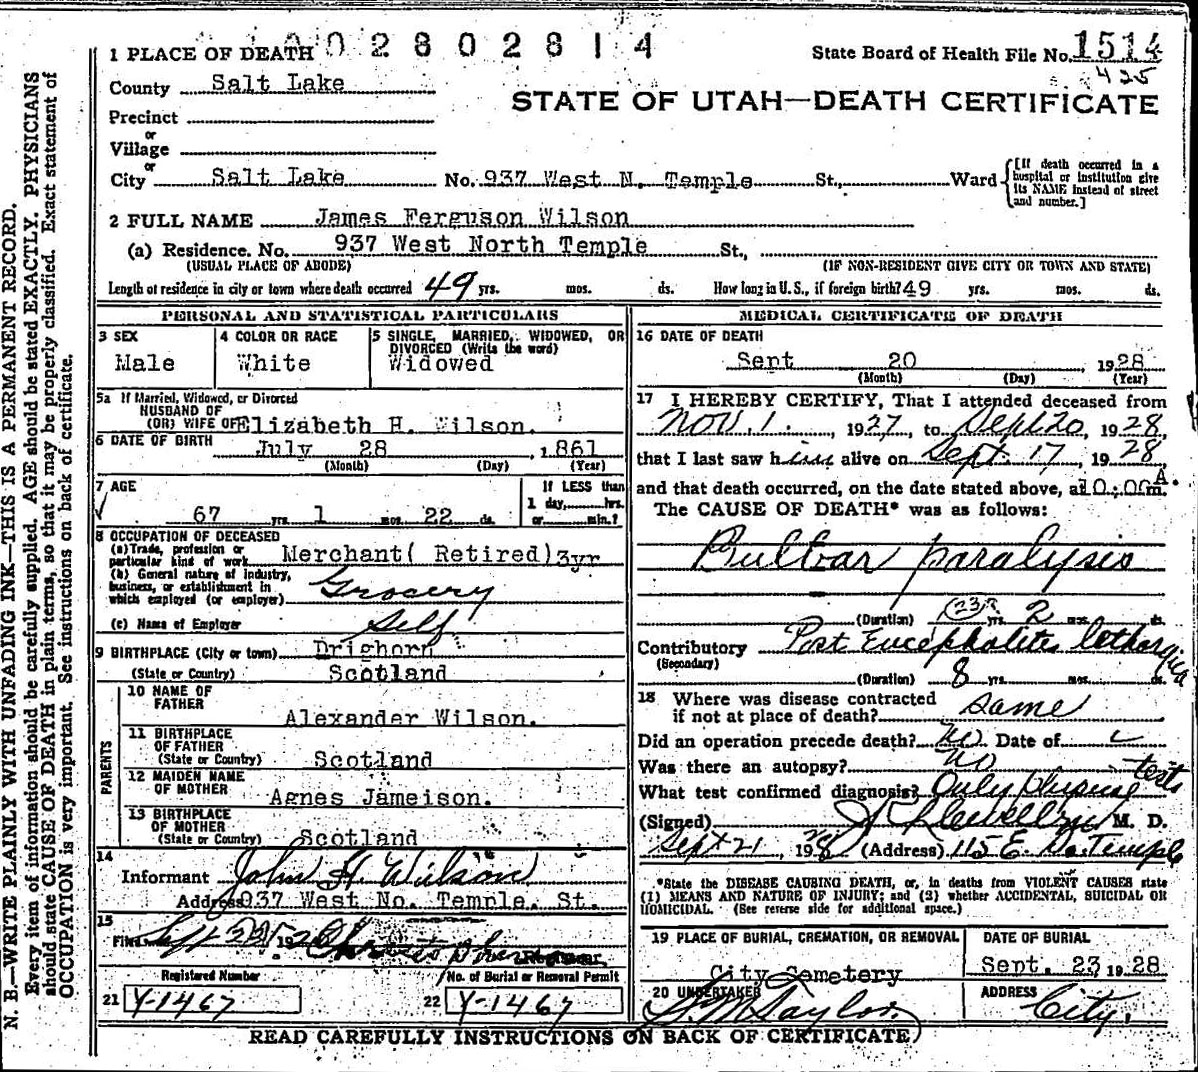 1 PLACE OF DEATH 002802814 State Board of Health File No. 1514
County Salt Lake 425
STATE OF UTAH—DEATH CERTIFICATE
Precinct
or
Village
or
City Salt Lake No. 937 West N. Temple St., Ward {[If death occurred in a hospital or institution give its NAME instead of street and number.]
2 FULL NAME James Ferguson Wilson
(a) Residence. No. 937 West North Temple St.,
(USUAL PLACE OF ABODE) (IF NON-RESIDENT GIVE CITY OR TOWN AND STATE)
Length of residence in city or town where death occurred 49 yrs. mos. ds. How long in U.S., if foreign birth? 49 yrs. mos. ds.
PERSONAL AND STATISTICAL PARTICULARS
3 SEX 4 COLOR OR RACE 5 SINGLE, MARRIED, WIDOWED, OR DIVORCED (Write the word)
Male White Widowed
5a If Married, Widowed, or Divorced
HUSBAND OF
(OR) WIFE OF Elizabeth H. Wilson.
6 DATE OF BIRTH July 28, 1861
(Month) (Day) (Year)
7 AGE If LESS than
1 day, hrs.
67 yrs. 1 mos. 22 ds. or min.?
8 OCCUPATION OF DECEASED
(a) Trade, profession or
particular kind of work Merchant( Retired) 3yr
(b) General nature of industry,
business, or establishment in
which employed (or employer) Grocery
(c) Name of Employer Self
9 BIRTHPLACE (City or town) Drighorn
(State or Country) Scotland
PARENTS
10 NAME OF
FATHER Alexander Wilson.
11 BIRTHPLACE
OF FATHER
(State or Country) Scotland
12 MAIDEN NAME
OF MOTHER Agnes Jameison.
13 BIRTHPLACE
OF MOTHER
(State or Country) Scotland
14
Informant John H. Wilson
Address 937 West No. Temple. St.
15
Filed 1928
Registrar.
Registered Number No. of Burial or Removal Permit
21 Y-1467 22 Y-1467
MEDICAL CERTIFICATE OF DEATH
16 DATE OF DEATH
Sept 20 1928
(Month) (Day) (Year)
17 I HEREBY CERTIFY, That I attended deceased from
Nov. 1., 1927, to Sept 20, 1928,
that I last saw him alive on Sept. 17, 1928
and that death occurred, on the date stated above, at 10:00 A.m.
The CAUSE OF DEATH* was as follows:
Bulbar paralysis
(Duration) yrs. 2 mos. ds.
Contributory Post Encephalites lethargica
(Secondary)
(Duration) 8 yrs. mos. ds.
18 Where was disease contracted
if not at place of death? same
Did an operation precede death? No Date of
Was there an autopsy? No
What test confirmed diagnosis? Only tests
(Signed) Llewellyn M. D.
Sept 21, 1928 (Address) 115 E. So. Temple
*State the DISEASE CAUSING DEATH, or, in deaths from VIOLENT CAUSES state
(1) MEANS AND NATURE OF INJURY; and (2) whether ACCIDENTAL, SUICIDAL OR
HOMICIDAL. (See reverse side for additional space.)
19 PLACE OF BURIAL, CREMATION, OR REMOVAL DATE OF BURIAL
City Cemetery Sept. 23, 1928
20 UNDERTAKER ADDRESS
S. M. Taylor City.
READ CAREFULLY INSTRUCTIONS ON BACK OF CERTIFICATE
N. B.—WRITE PLAINLY WITH UNFADING INK—THIS IS A PERMANENT RECORD.
Every item of information should be carefully supplied. AGE should be stated EXACTLY. PHYSICIANS
should state CAUSE OF DEATH in plain terms, so that it may be properly classified. Exact statement of
OCCUPATION is very important. See instructions on back of certificate.